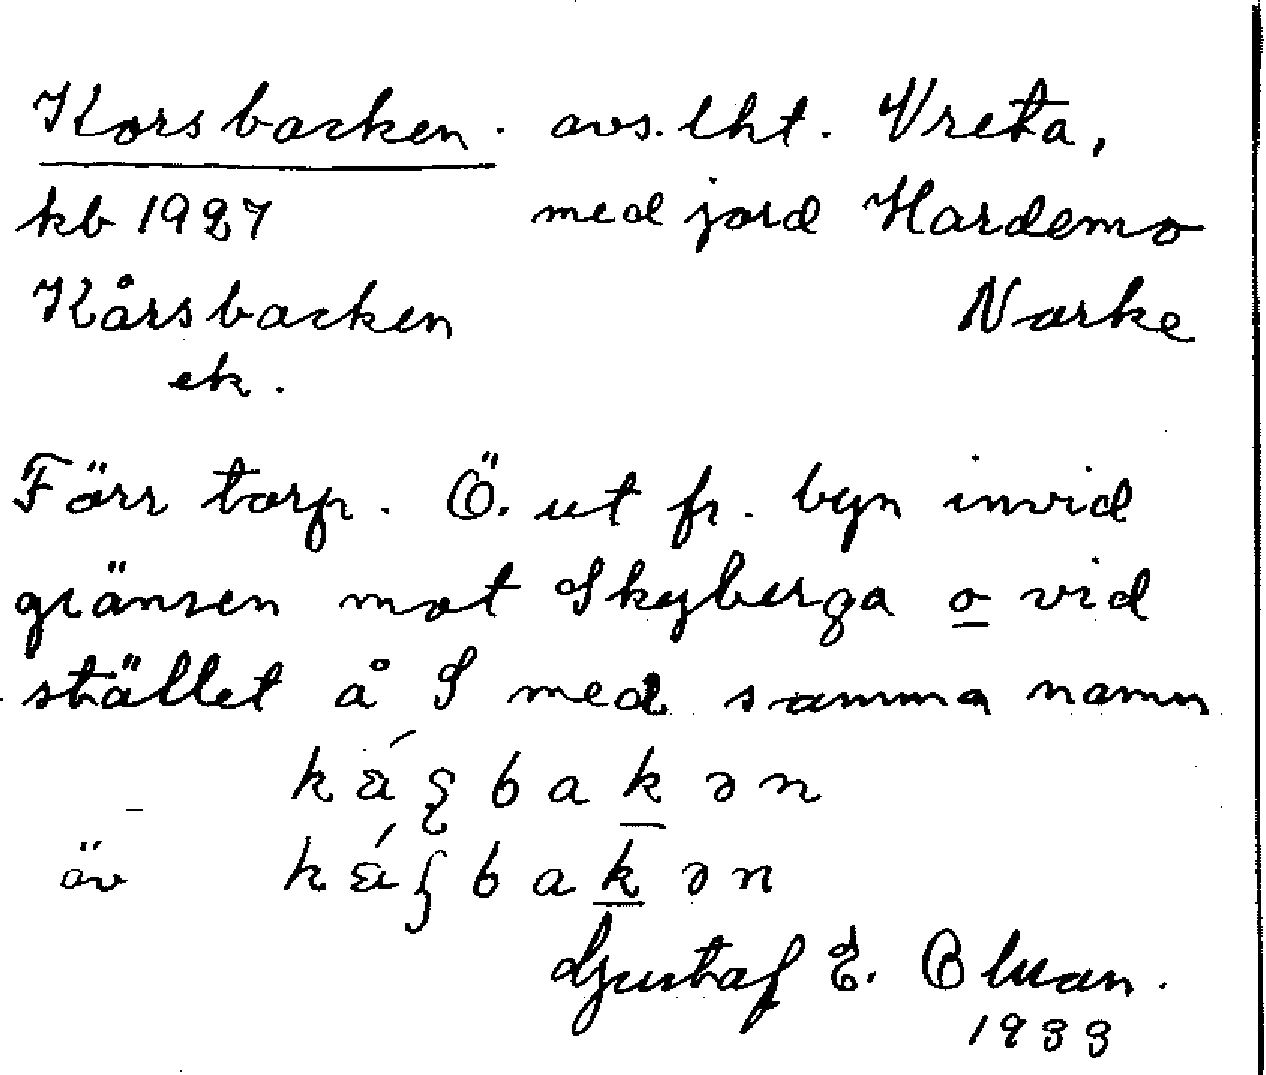 Korsbacken. avs. lht. Vreta,
kb 1927 med jord Hardemo
Kårsbacken Närke
ek.
Förr torp. Ö. ut fr. byn invid
gränsen mot Skyberga o vid
stället å S med samma namn
av
Gustaf E. Bluan.
1933